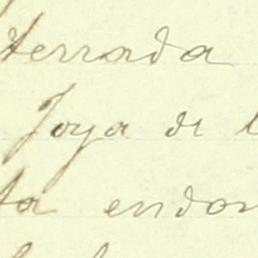 terrada
Joya de l
ta endon